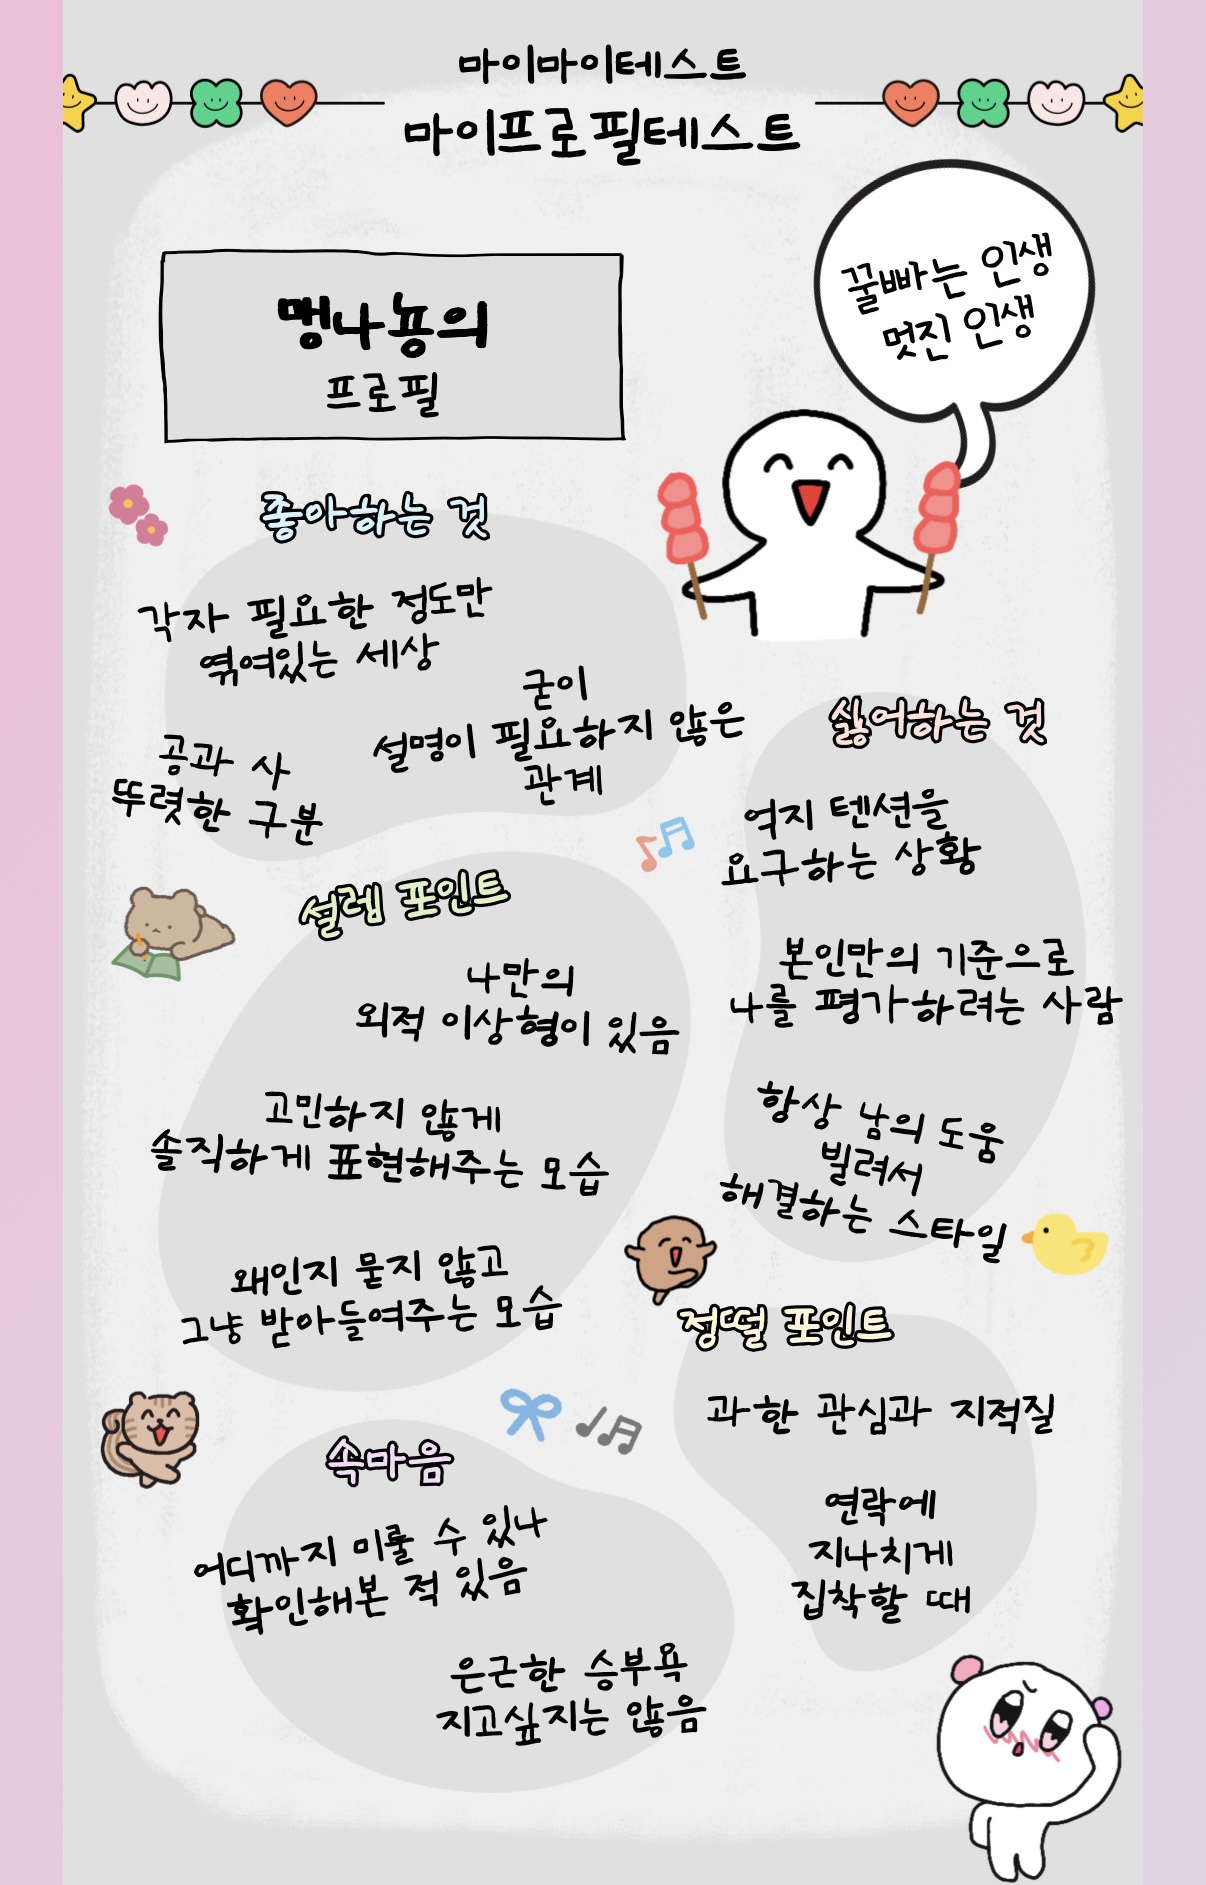 마이마이테스트
마이프로필테스트
꿀빠는 인생
멋진 인생
맹나뇽의
프로필
좋아하는 것
각자 필요한 정도만
엮여있는 세상
굳이
설명이 필요하지 않은
관계
공과 사
뚜렷한 구분
싫어하는 것
억지 텐션을
요구하는 상황
본인만의 기준으로
나를 평가하려는 사람
항상 남의 도움
빌려서
해결하는 스타일
설렘 포인트
나만의
외적 이상형이 있음
고민하지 않게
솔직하게 표현해주는 모습
왜인지 묻지 않고
그냥 받아들여주는 모습
정떨 포인트
과한 관심과 지적질
연락에
지나치게
집착할 때
속마음
어디까지 미룰 수 있나
확인해본 적 있음
은근한 승부욕
지고싶지는 않음